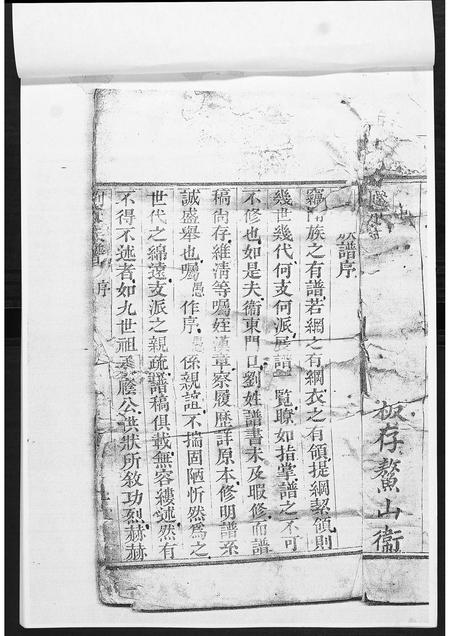 板存鰲山衞
族譜序
竊聞族之有譜若綱之有綱衣之有領提綱絜領則
幾世幾代何支何派展譜一覧瞭如指掌譜之不可
不修也如是夫衞東門口劉姓譜書未及暇修而譜
稿尚存維清等囑姪漢章察履歷詳原本修明譜系
誠盛舉也囑愚作序愚係親誼不揣固陋忻然爲之
世代之綿遠支派之親疏譜稿俱載無容縷述然有
不得不述者如九世祖 廕公供狀所敘功烈赫赫
序